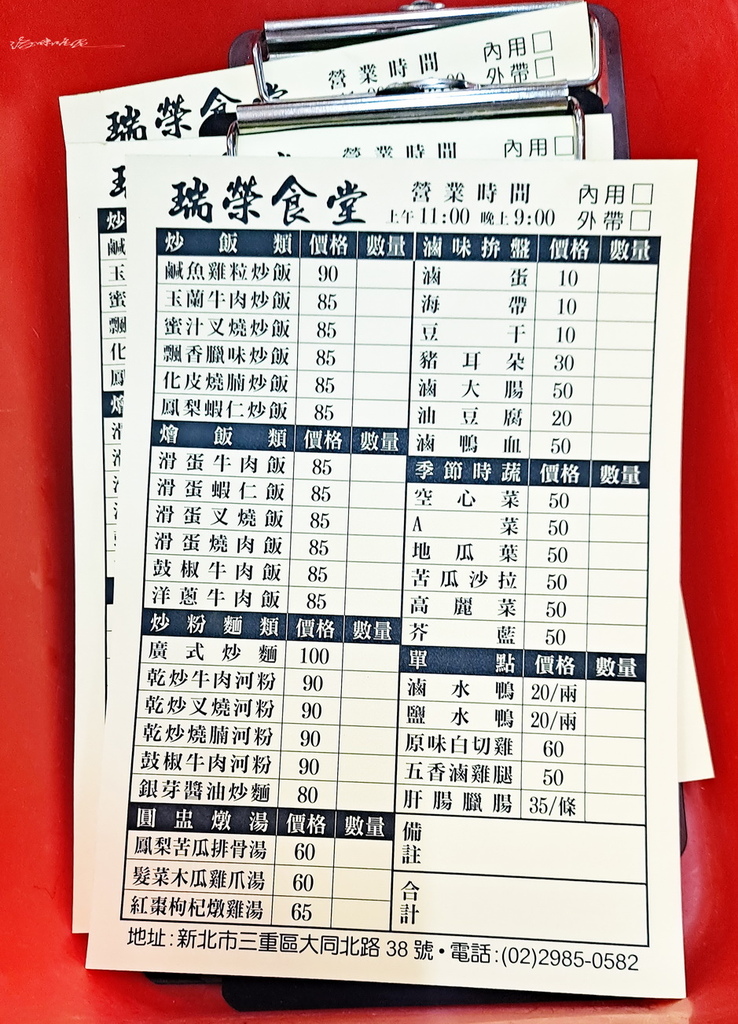 營業時間
內用□
外帶□
瑞榮食堂
營業時間
內用□
瑞榮食堂
營業時間
上午 11:00 晚上 9:00
內用□
外帶□
炒飯類 價格 數量
鹹魚雞粒炒飯 90
玉蘭牛肉炒飯 85
蜜汁叉燒炒飯 85
飄香臘味炒飯 85
化皮燒腩炒飯 85
鳳梨蝦仁炒飯 85
燴飯類 價格 數量
滑蛋牛肉飯 85
滑蛋蝦仁飯 85
滑蛋叉燒飯 85
滑蛋燒肉飯 85
鼓椒牛肉飯 85
洋蔥牛肉飯 85
炒粉麵類 價格 數量
廣式炒麵 100
乾炒牛肉河粉 90
乾炒叉燒河粉 90
乾炒燒腩河粉 90
鼓椒牛肉河粉 90
銀芽醬油炒麵 80
圓盅燉湯 價格 數量
鳳梨苦瓜排骨湯 60
髮菜木瓜雞爪湯 60
紅棗枸杞燉雞湯 65
滷味拚盤 價格 數量
滷蛋 10
海帶 10
豆干 10
豬耳朵 30
滷大腸 50
油豆腐 20
滷鴨血 50
季節時蔬 價格 數量
空心菜 50
A菜 50
地瓜葉 50
苦瓜沙拉 50
高麗菜 50
芥藍 50
單點 價格 數量
滷水鴨 20/兩
鹽水鴨 20/兩
原味白切雞 60
五香滷雞腿 50
肝腸臘腸 35/條
備註
合計
地址:新北市三重區大同北路 38 號•電話:(02)2985-0582